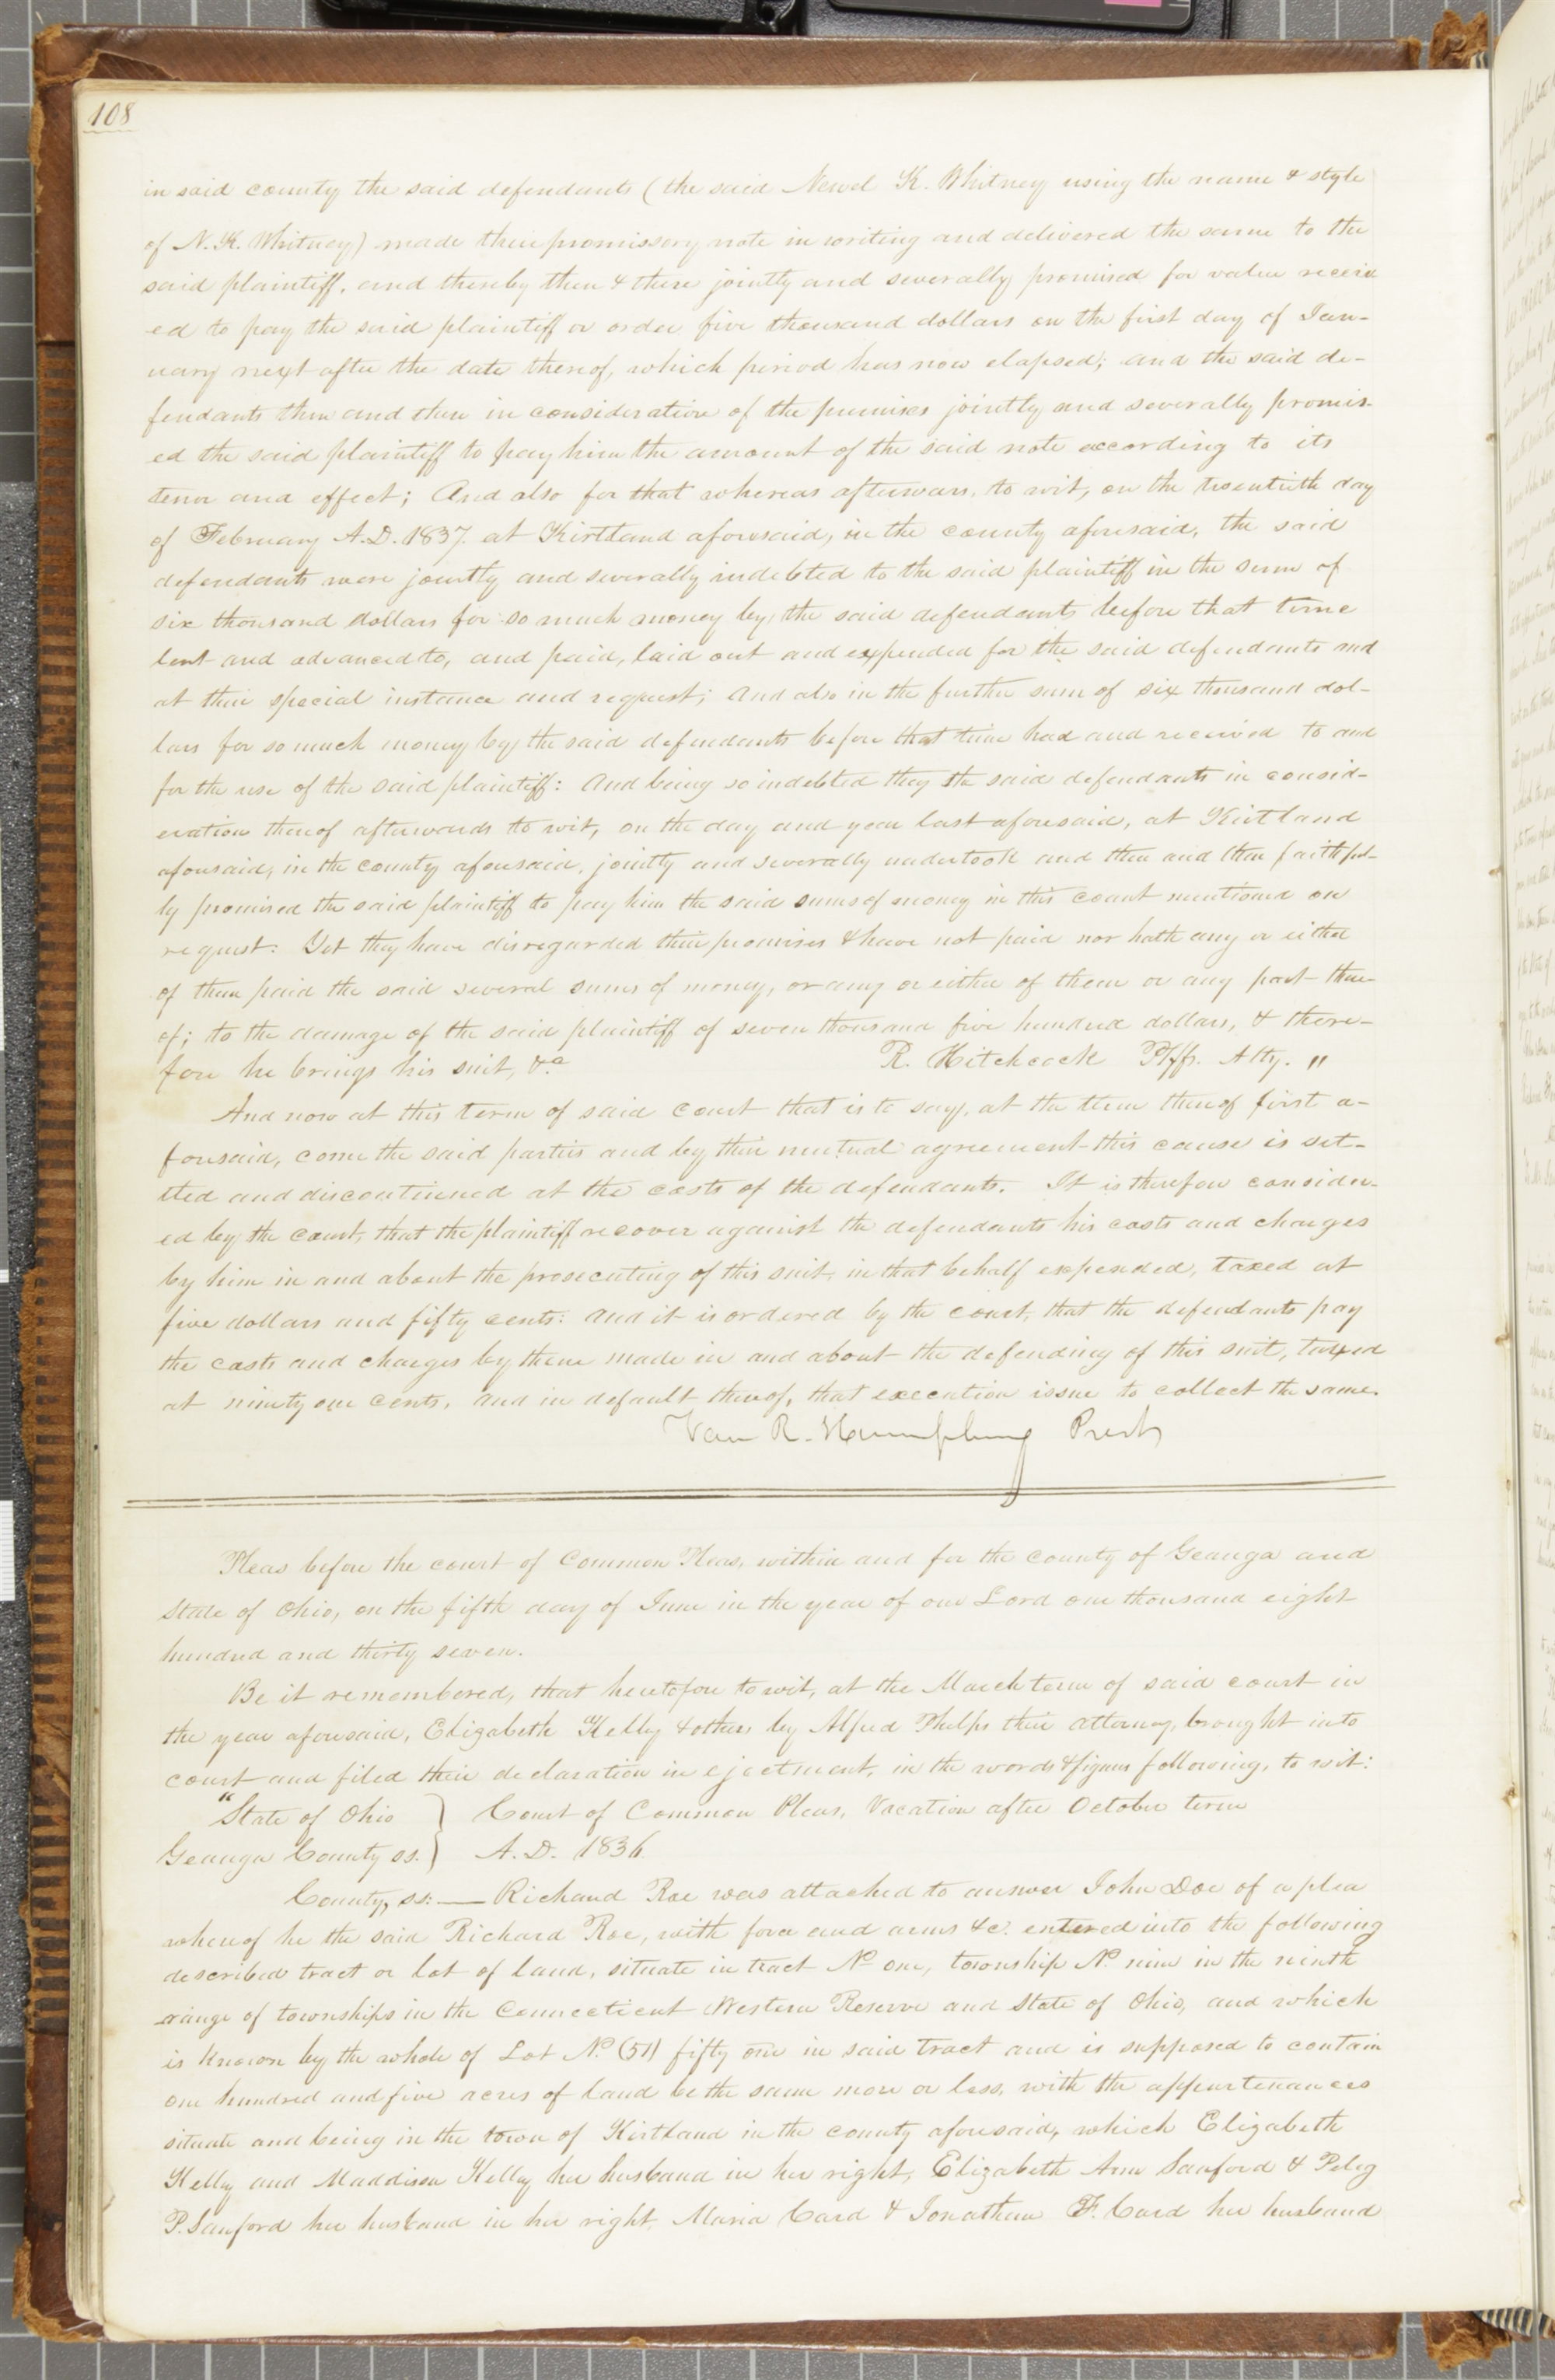 108
in said county the said defendants (the said Newel K. Whitney using the name & style
of N. K. Whitney) made their promissory note in writing and delivered the same to the
said plaintiff, and thereby then & there jointly and severally promised for value receiv
ed to pay the said plaintiff or order five thousand dollars on the first day of Jan-
uary next after the date thereof, which period has now elapsed; and the said de-
fendants then and there in consideration of the premises jointly and severally promis-
ed the said plaintiff to pay him the amount of the said note according to its
tenor and effect; And also for that whereas afterwars, to wit, on the twentieth day
of February A.D. 1837. at Kirtland aforesaid, in the county aforesaid, the said
defendants were jointly and severally indebted to the said plaintiff in the sum of
six thousand dollars for so much money by, the said defendants before that time
lent and advanced to, and paid, laid out and expended for the said defendants and
at their special instance and request; And also in the further sum of six thousand dol-
lars for so much money by, the said defendants before that time had and received to and
for the use of the said plaintiff: And being so indebted they the said defendants in consid-
eration thereof afterwards to wit, on the day and year last aforesaid, at Kirtland
aforesaid, in the county aforesaid, jointly and severally undertook and then and there faithful-
ly promised the said plaintiff to pay him the said sums of money in this count mentioned on
request: Yet they have disregarded their promises & have not paid nor hath any or either
of them paid the said several sums of money, or any or either of them or any part there-
of; to the damage of the said plaintiff of seven thousand five hundred dollars, & there-
fore he brings his suit, &c R. Hitchcock Plffs. Atty. "
And now at this term of said court that is to say, at the term thereof first a-
foresaid, come the said parties and by their mutual agreement this cause is set-
tled and discontinued at the costs of the defendants. It is therefore consider-
ed by the court, that the plaintiff recover against the defendants his costs and charges
by him in and about the prosecuting of this suit, in that behalf expended, taxed at
five dollars and fifty cents: And it is ordered by the court, that the defendants pay
the costs and charges by them made in and about the defending of this suit, taxed
at ninety one cents, and in default thereof, that execution issue to collect the same.
Van R. Humphrey Prest
Pleas before the court of Common Pleas, within and for the county of Geauga and
State of Ohio, on the fifth day of June in the year of our Lord one thousand eight
hundred and thirty seven.
Be it remembered, that heretofore to wit, at the March term of said court in
the year aforesaid, Elizabeth Kelly & others by Alfred Phelps their attorney, brought into
court and filed their declaration in ejectment, in the words & figures following, to wit:
"State of Ohio } Court of Common Pleas, Vacation after October term
Geauga County ss. } A.D. 1836
County, ss: — Richard Roe was attached to answer John Doe of a plea
whereof he the said Richard Roe, with force and arms &c. entered into the following
described tract or lot of land, situate in tract No one, township No. nine in the ninth
range of townships in the Connecticut Western Reserve and State of Ohio, and which
is known by the whole of Lot No. (51) fifty one in said tract and is supposed to contain
one hundred and five acres of land be the same more or less, with the appurtenances
situate and being in the town of Kirtland in the county aforesaid, which Elizabeth
Kelly and Maddison Kelly her husband in her right, Elizabeth Ann Sanford & Peleg
P. Sanford her husband in her right, Maria Card & Jonathan F. Card her husband